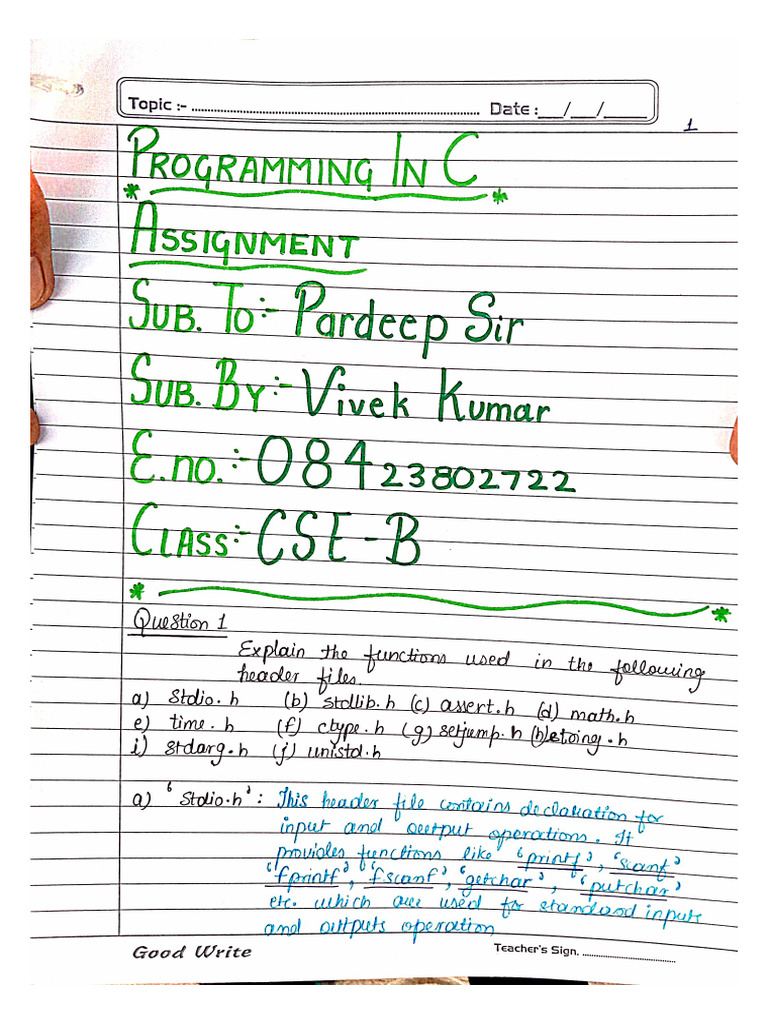 Topic :- ........................ Date :__/__/____
1
PROGRAMMING IN C
ASSIGNMENT
SUB. TO:- Pardeep Sir
SUB. BY:- Vivek Kumar
E.no.:- 08423802722
CLASS:- CSE-B
Question 1
Explain the functions used in the following
header files.
a) stdio.h (b) stdlib.h (c) assert.h (d) math.h
e) time.h (f) ctype.h (g) setjump.h (h) stoing.h
i) stdarg.h (j) unistd.h
a) 'Stdio.h': This header file contains declaration for
input and output operations. It
provides functions like 'printf', 'scanf'
'fprintf', 'fscanf', 'getchar', 'putchar'
etc. which are used for standard inputs
and outputs operation
Good Write
Teacher's Sign. ........................